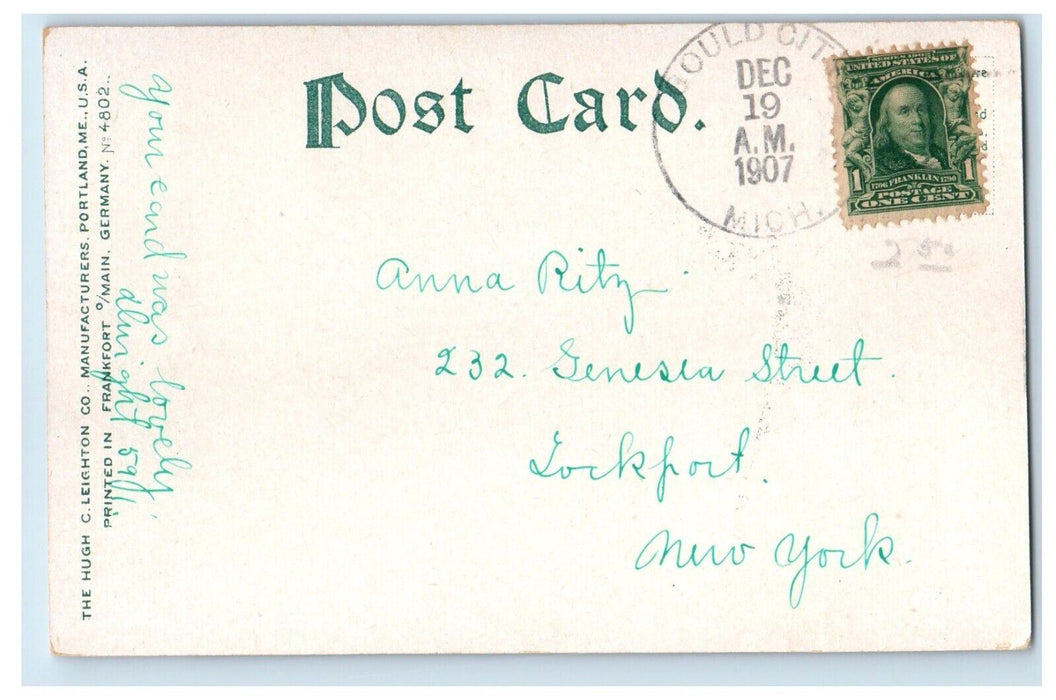 Post Card.
GOULD CITY
DEC
19
A.M.
1907
MICH.
SERIES 1902
UNITED STATES OF
AMERICA
1706 FRANKLIN 1790
1 1
POSTAGE
ONE CENT
2 50
Anna Ritz
232. Genesea Street.
Lockport.
New York.
Your card was lovely.
THE HUGH C. LEIGHTON CO., MANUFACTURERS, PORTLAND, ME., U.S.A.
PRINTED IN FRANKFORT O/MAIN, GERMANY. No 4802.